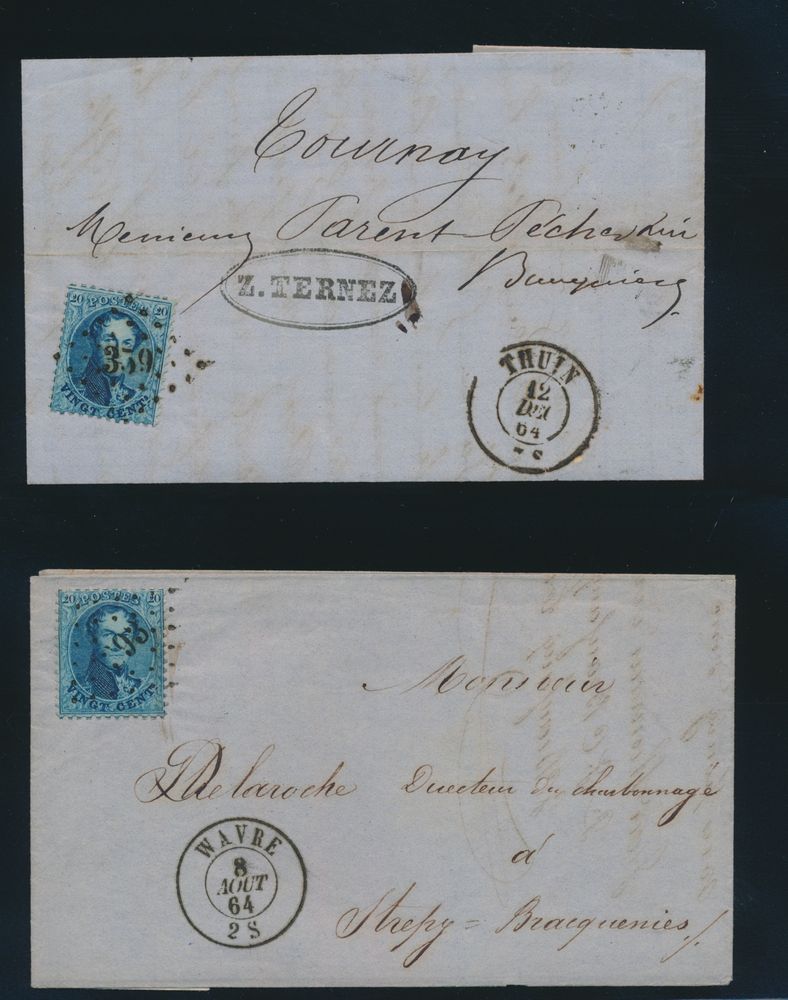 Tournay
Monsieur Parent Pécher
Z. TERNEZ
Banquiers
20 POSTES 20
359
VINGT CENTS
THUIN
12
DEC
64
7 S
20 POSTES 20
VINGT CENTS
Monsieur
Delaroche Directeur du charbonnage
à
Strepy = Bracquenies
WAVRE
8
AOUT
64
2 S